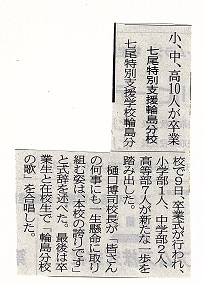 小、中、高10人が卒業
七尾特別支援輪島分校
七尾特別支援学校輪島分
校で9日、卒業式が行われ、
小学部1人、中学部2人、
高等部7人が新たな一歩を
踏み出した。
樋口博司校長が「皆さん
の何事にも一生懸命に取り
組む姿は、本校の誇りです」
と式辞を述べた。最後は卒
業生と在校生で「輪島分校
の歌」を合唱した。